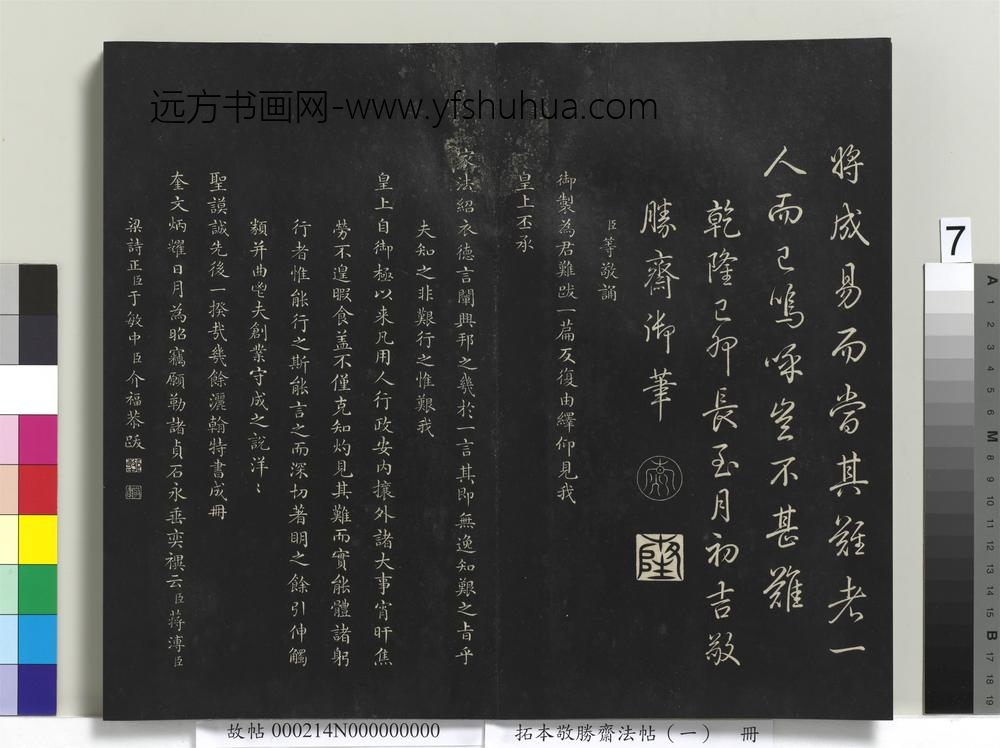 远方书画网-www.yfshuhua.com
將成易而當其難者一
人而已嗚呼豈不甚難
乾隆己卯長至月初吉敬
勝齋御筆
乾
隆
臣等敬誦
御製為君難跋一篇反復由繹仰見我
皇上丕承
家法紹衣德言闡興邦之幾於一言其即無逸知艱之旨乎
夫知之非艱行之惟艱我
皇上自御極以来凡用人行政安内攘外諸大事宵旰焦
勞不遑暇食盖不僅克知灼見其難而實能體諸躬
行者惟能行之斯能言之而深切著明之餘引伸觸
類并曲鬯夫創業守成之說洋〻
聖謨誠先後一揆我幾餘灑翰特書成冊
奎文炳燿日月為昭竊願勒諸貞石永垂奕禩云臣蒋溥臣
梁詩正臣于敏中臣介福恭跋
7
A 1 2 3 4 5 6 M 8 9 10 11 12 13 14 15 B 17 18 19
故帖 000214N000000000
拓本敬勝齋法帖（一） 冊